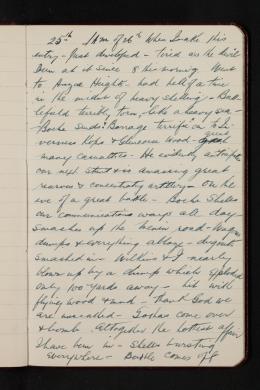 25th 1 AM of 26th When I make this
entry - Just developed - tired as the devil
Been at it since 8 this morning Went
to Anzac Heights - had hell of a time
in the midst of heavy shelling - Battlefield
terribly torn, like a heavy sea
Boche sends Barrage terrific on
Inverness Copse & Glencorse Wood great
many casualties - He evidently anticipates
our next stunt & is amassing great
reserves & concentrating artillery - On the
eve of a great battle - Boche shells
our communications ways all day
smashes up the Menin road - Wagons
dumps & everything ablaze - dugouts
smashed in - Wilkins & I nearly
blown up by a dump which exploded
only 100 yards away - hit with
flying wood & mud - thank God we
are unscathed - Gothas come over
& bomb. Altogether the hottest affair
I have been in - Shells bursting
everywhere - Battle comes off